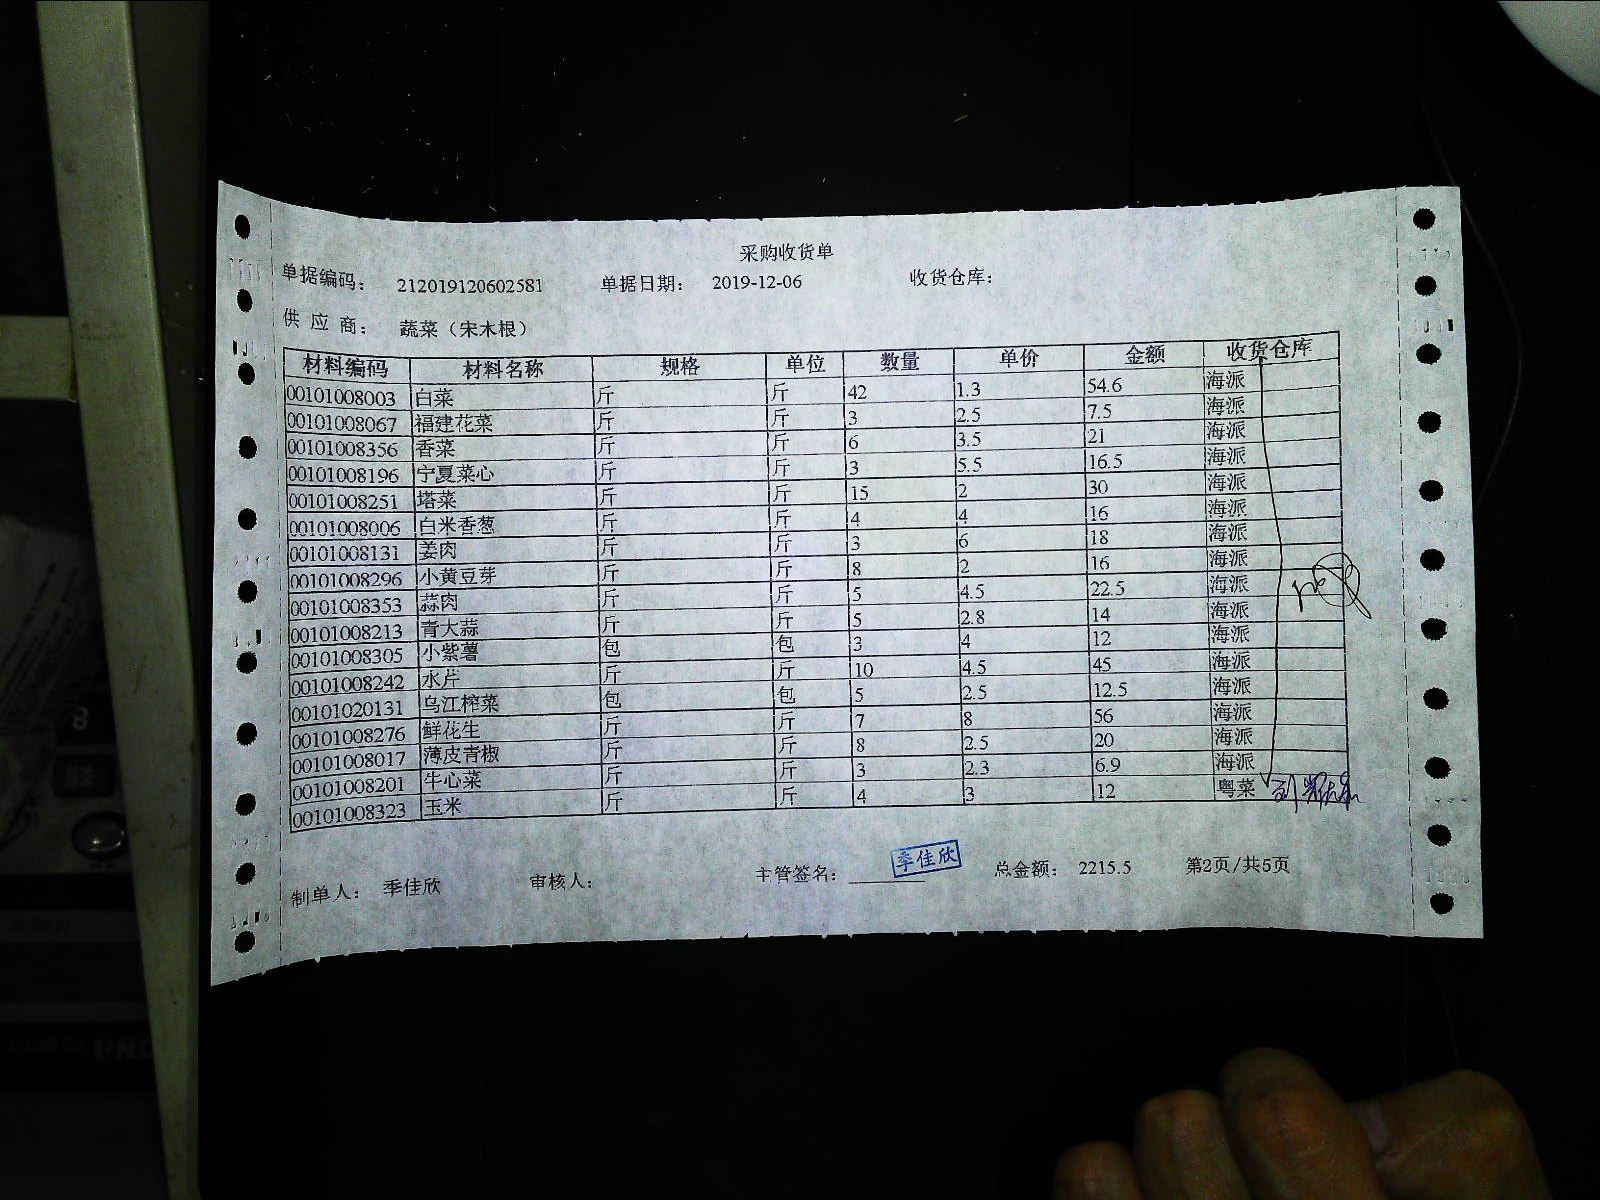 采购收货单
单据编码： 212019120602581 单据日期： 2019-12-06 收货仓库：
供 应 商： 蔬菜（宋木根）
材料编码 材料名称 规格 单位 数量 单价 金额 收货仓库
00101008003 白菜 斤 斤 42 1.3 54.6 海派
00101008067 福建花菜 斤 斤 3 2.5 7.5 海派
00101008356 香菜 斤 斤 6 3.5 21 海派
00101008196 宁夏菜心 斤 斤 3 5.5 16.5 海派
00101008251 塔菜 斤 斤 15 2 30 海派
00101008006 白米香葱 斤 斤 4 4 16 海派
00101008131 姜肉 斤 斤 3 6 18 海派
00101008296 小黄豆芽 斤 斤 8 2 16 海派
00101008353 蒜肉 斤 斤 5 4.5 22.5 海派
00101008213 青大蒜 斤 斤 5 2.8 14 海派
00101008305 小紫薯 包 包 3 4 12 海派
00101008242 水芹 斤 斤 10 4.5 45 海派
00101020131 乌江榨菜 包 包 5 2.5 12.5 海派
00101008276 鲜花生 斤 斤 7 8 56 海派
00101008017 薄皮青椒 斤 斤 8 2.5 20 海派
00101008201 牛心菜 斤 斤 3 2.3 6.9 海派
00101008323 玉米 斤 斤 4 3 12 粤菜
制单人： 季佳欣 审核人： 主管签名： 季佳欣 总金额： 2215.5 第2页/共5页